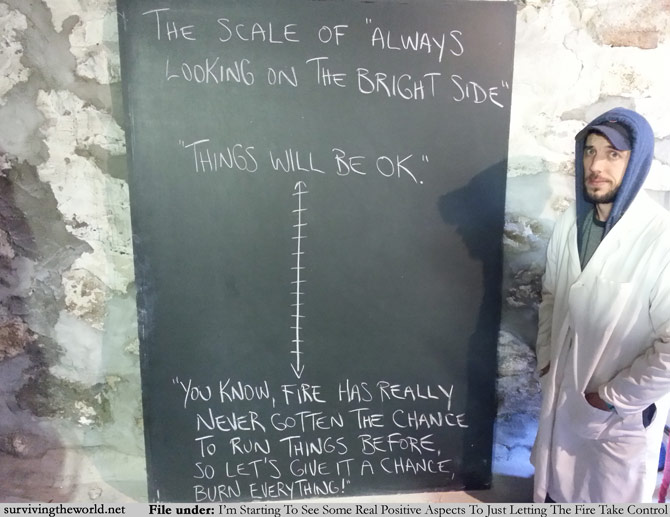 THE SCALE OF "ALWAYS
LOOKING ON THE BRIGHT SIDE"
"THINGS WILL BE OK."
"YOU KNOW, FIRE HAS REALLY
NEVER GOTTEN THE CHANCE
TO RUN THINGS BEFORE,
SO LET'S GIVE IT A CHANCE,
BURN EVERYTHING!"
survivingtheworld.net File under: I'm Starting To See Some Real Positive Aspects To Just Letting The Fire Take Control